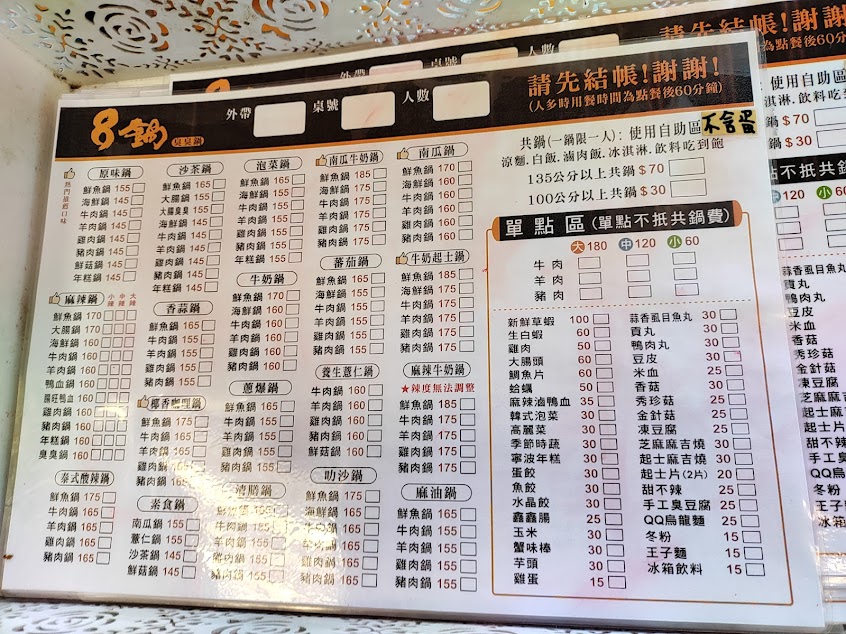 8鍋 臭臭鍋
外帶 桌號 人數
請先結帳!謝謝!
(人多時用餐時間為點餐後60分鐘)
共鍋(一鍋限一人): 使用自助區 不含蛋
涼麵.白飯.滷肉飯.冰淇淋.飲料吃到飽
135公分以上共鍋$70
100公分以上共鍋$30
熱門推薦口味
原味鍋
鮮魚鍋 155
海鮮鍋 145
牛肉鍋 145
羊肉鍋 145
雞肉鍋 145
豬肉鍋 145
鮮菇鍋 145
年糕鍋 145
麻辣鍋 小辣 中辣 大辣
鮮魚鍋 170
大腸鍋 170
海鮮鍋 160
牛肉鍋 160
羊肉鍋 160
鴨血鍋 160
腸旺鴨血 160
雞肉鍋 160
豬肉鍋 160
年糕鍋 160
臭臭鍋 160
泰式酸辣鍋
鮮魚鍋 175
牛肉鍋 165
羊肉鍋 165
雞肉鍋 165
豬肉鍋 165
沙茶鍋
鮮魚鍋 165
大腸鍋 155
大腸臭臭 155
海鮮鍋 145
牛肉鍋 145
羊肉鍋 145
雞肉鍋 145
豬肉鍋 145
年糕鍋 145
香蒜鍋
鮮魚鍋 165
牛肉鍋 155
羊肉鍋 155
雞肉鍋 155
豬肉鍋 155
椰香咖哩鍋
鮮魚鍋 175
牛肉鍋 165
羊肉鍋 165
雞肉鍋 165
豬肉鍋 165
素食鍋
南瓜鍋 155
薏仁鍋 155
沙茶鍋 145
鮮菇鍋 145
泡菜鍋
鮮魚鍋 165
海鮮鍋 155
牛肉鍋 155
羊肉鍋 155
雞肉鍋 155
豬肉鍋 155
牛奶鍋
鮮魚鍋 170
海鮮鍋 160
牛肉鍋 160
羊肉鍋 160
雞肉鍋 160
豬肉鍋 160
蔥爆鍋
鮮魚鍋 165
牛肉鍋 155
羊肉鍋 155
雞肉鍋 155
豬肉鍋 155
清膳鍋
鮮魚鍋 165
牛肉鍋 155
羊肉鍋 155
雞肉鍋 155
豬肉鍋 155
南瓜牛奶鍋
鮮魚鍋 185
海鮮鍋 175
牛肉鍋 175
羊肉鍋 175
雞肉鍋 175
豬肉鍋 175
蕃茄鍋
鮮魚鍋 165
海鮮鍋 155
牛肉鍋 155
羊肉鍋 155
雞肉鍋 155
豬肉鍋 155
養生薏仁鍋
牛肉鍋 160
羊肉鍋 160
雞肉鍋 160
豬肉鍋 160
鮮菇鍋 160
叻沙鍋
鮮魚鍋 175
海鮮鍋 165
牛肉鍋 165
羊肉鍋 165
雞肉鍋 165
豬肉鍋 165
南瓜鍋
鮮魚鍋 170
海鮮鍋 160
牛肉鍋 160
羊肉鍋 160
雞肉鍋 160
豬肉鍋 160
牛奶起士鍋
鮮魚鍋 185
海鮮鍋 175
牛肉鍋 175
羊肉鍋 175
雞肉鍋 175
豬肉鍋 175
麻辣牛奶鍋
★辣度無法調整
鮮魚鍋 185
牛肉鍋 175
羊肉鍋 175
雞肉鍋 175
豬肉鍋 175
麻油鍋
鮮魚鍋 165
牛肉鍋 155
羊肉鍋 155
雞肉鍋 155
豬肉鍋 155
單點區(單點不抵共鍋費)
大180 中120 小60
牛肉
羊肉
豬肉
新鮮草蝦 100
生白蝦 60
雞肉 50
大腸頭 60
鯛魚片 60
蛤蠣 50
麻辣滷鴨血 35
韓式泡菜 30
高麗菜 30
季節時蔬 30
寧波年糕 30
蛋餃 30
魚餃 30
水晶餃 30
鑫鑫腸 25
玉米 30
蟹味棒 30
芋頭 30
雞蛋 15
蒜香虱目魚丸 30
貢丸 30
鴨肉丸 30
豆皮 30
米血 25
香菇 30
秀珍菇 25
金針菇 25
凍豆腐 25
芝麻麻吉燒 30
起士麻吉燒 30
起士片(2片) 20
甜不辣 25
手工臭豆腐 25
QQ烏龍麵 25
冬粉 15
王子麵 15
冰箱飲料 15